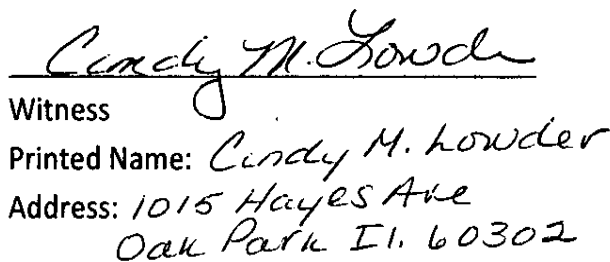 Cindy M. Lowder
Witness
Printed Name: Cindy M. Lowder
Address: 1015 Hayes Ave
Oak Park Il. 60302